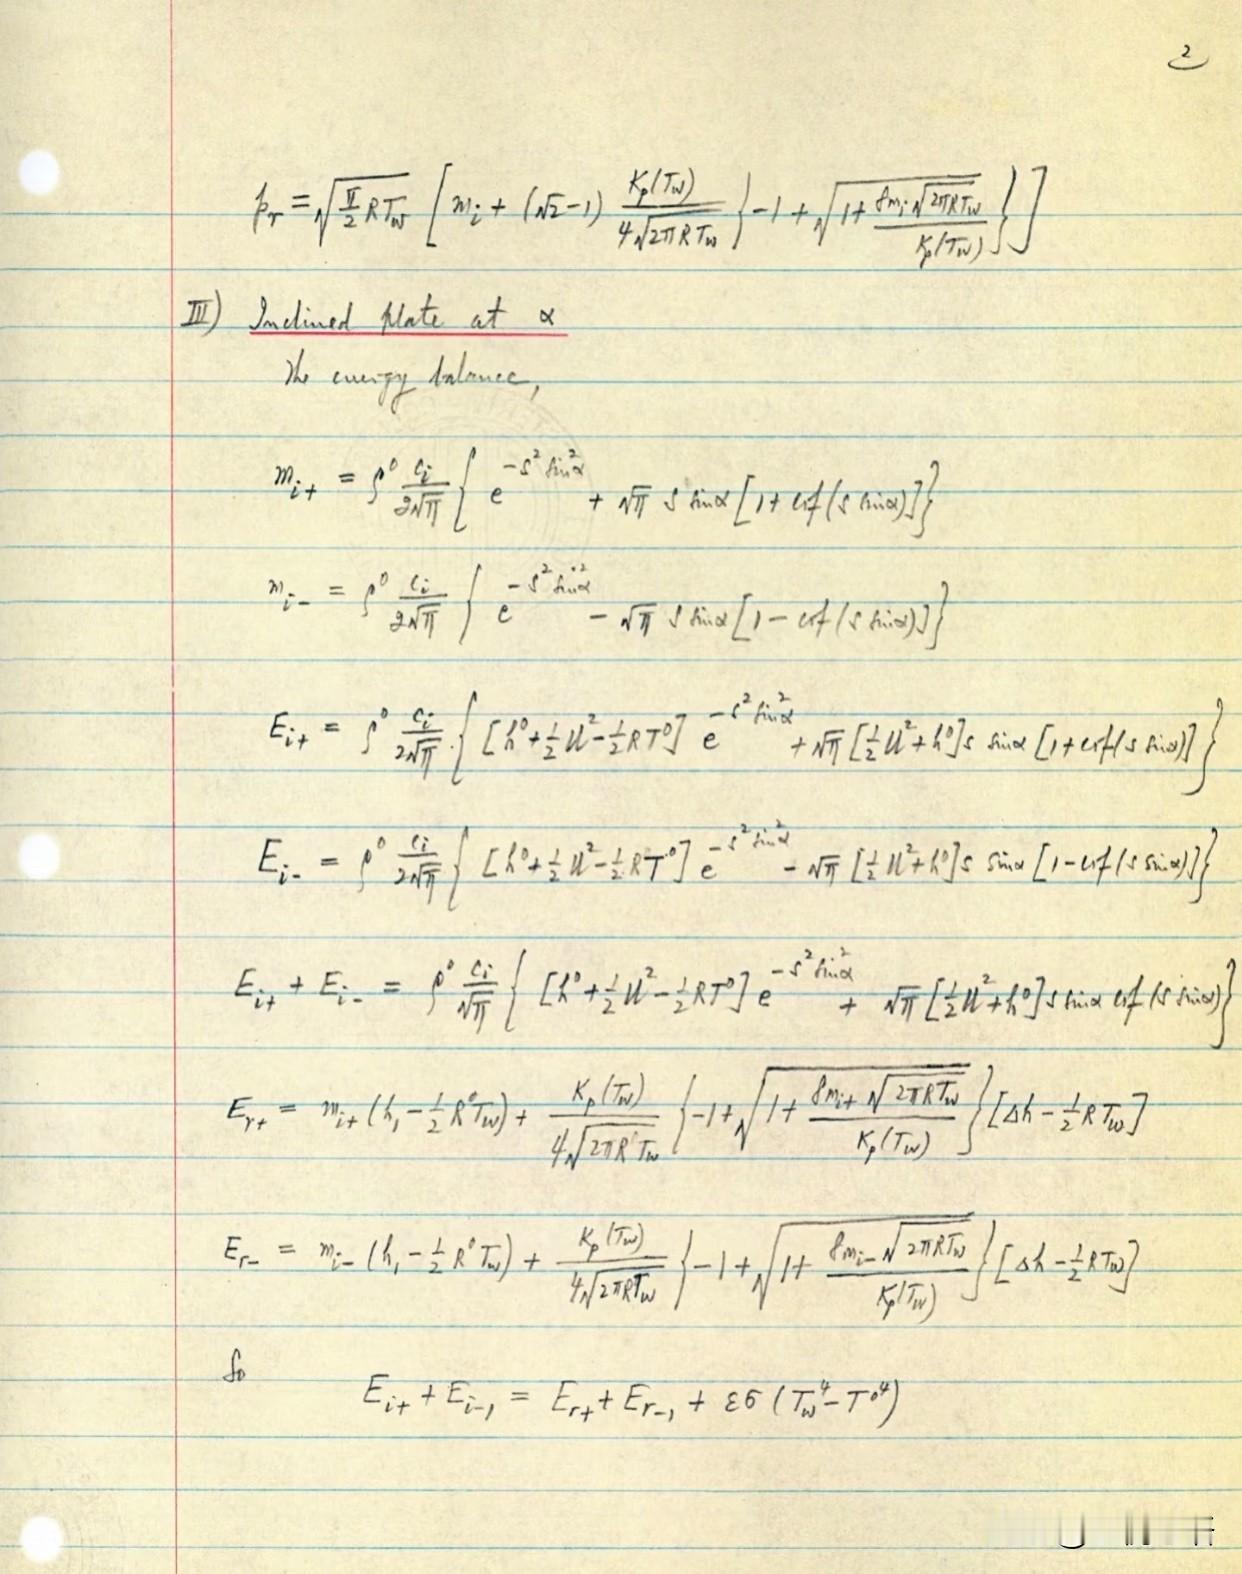 2
p_r = √(π/2 RT_w) [m_i + (√2-1) K_p(T_w)/(4√(2πRT_w)) {-1 + √(1 + 8m_i√(2πRT_w)/K_p(T_w))}]
III) Inclined plate at α
The energy balance,
m_i+ = ρ⁰ c_i/(2√π) { e^(-s² sin²α) + √π s sinα [1 + erf(s sinα)]}
m_i- = ρ⁰ c_i/(2√π) { e^(-s² sin²α) - √π s sinα [1 - erf(s sinα)]}
E_i+ = ρ⁰ c_i/(2√π) { [h⁰ + ½U² - ½RT⁰] e^(-s² sin²α) + √π [½U² + h⁰] s sinα [1 + erf(s sinα)] }
E_i- = ρ⁰ c_i/(2√π) { [h⁰ + ½U² - ½RT⁰] e^(-s² sin²α) - √π [½U² + h⁰] s sinα [1 - erf(s sinα)] }
E_i+ + E_i- = ρ⁰ c_i/√π { [h⁰ + ½U² - ½RT⁰] e^(-s² sin²α) + √π [½U² + h⁰] s sinα erf(s sinα) }
E_r+ = m_i+ (h₁ - ½R⁰T_w) + K_p(T_w)/(4√(2πR'T_w)) {-1 + √(1 + 8m_i+ √(2πRT_w)/K_p(T_w))} [Δh - ½RT_w]
E_r- = m_i- (h₁ - ½R⁰T_w) + K_p(T_w)/(4√(2πRT_w)) {-1 + √(1 + 8m_i- √(2πRT_w)/K_p(T_w))} [Δh - ½RT_w]
So
E_i+ + E_i-, = E_r+ + E_r-, + εσ (T_w⁴ - T⁰⁴)